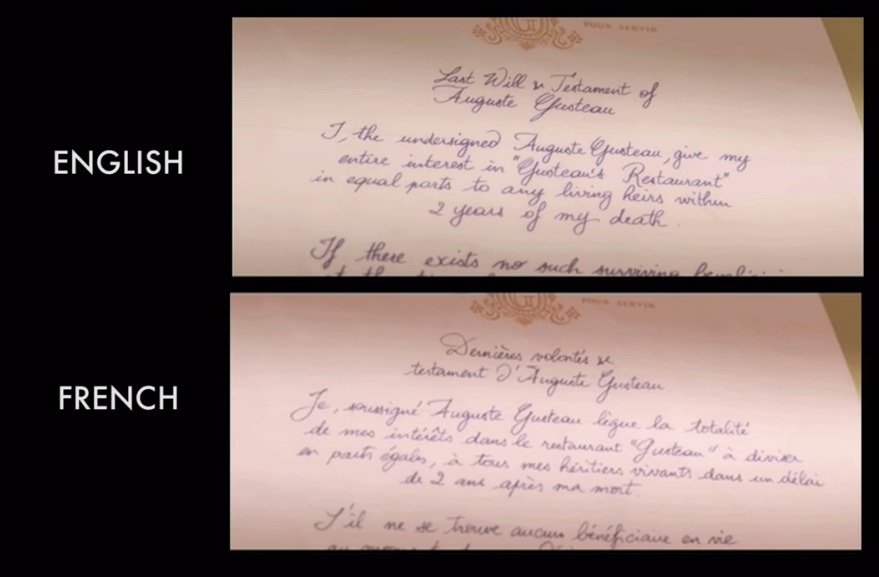 ENGLISH
POUR SERVIR
Last Will & Testament of
Auguste Gusteau
I, the undersigned Auguste Gusteau, give my
entire interest in "Gusteau's Restaurant"
in equal parts to any living heirs within
2 years of my death.
If there exists no such surviving
FRENCH
POUR SERVIR
Dernières volontés &
testament d'Auguste Gusteau
Je, soussigné Auguste Gusteau lègue la totalité
de mes intérêts dans le restaurant "Gusteau" à diviser
en parts égales, à tous mes héritiers vivants dans un délai
de 2 ans après ma mort.
S'il ne se trouve aucun bénéficiaire en vie